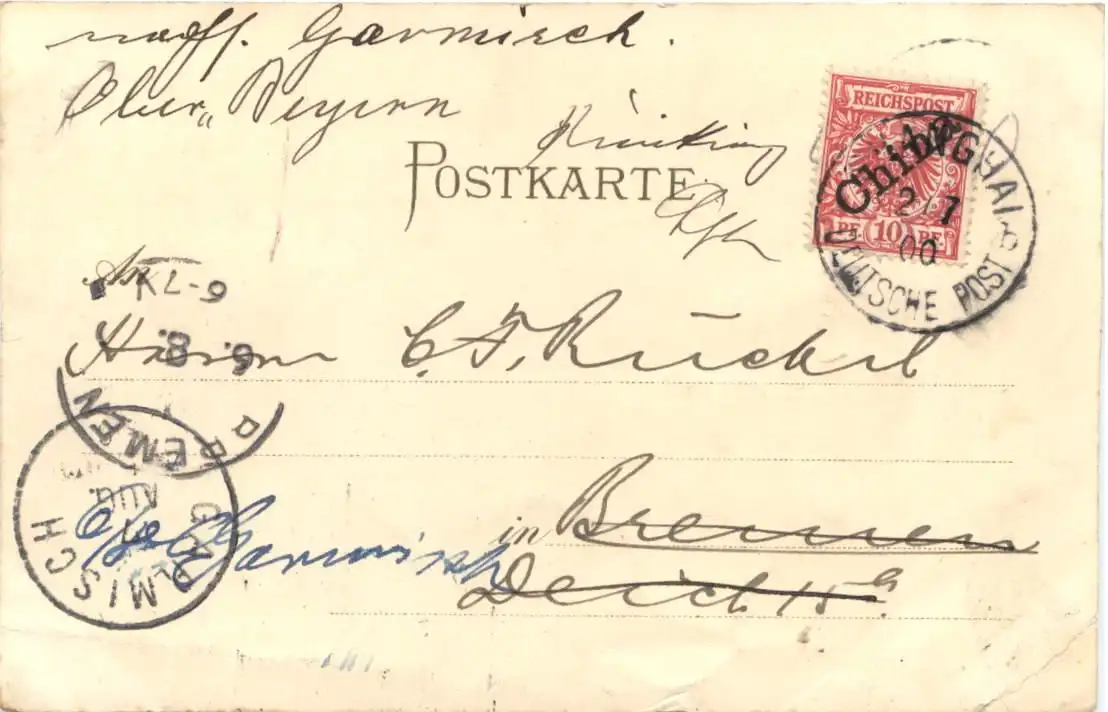 nach Garmisch.
Ober„ Bayern
REICHSPOST
China
PF. 10 PF.
POSTKARTE
SHANGHAI
2/7
00
DEUTSCHE POST
An
6-7N
Herrn C. F. Rückert
6. 8.
BREMEN
in Bremen
Garmisch
Deich 15a
GARMISCH
AUG.